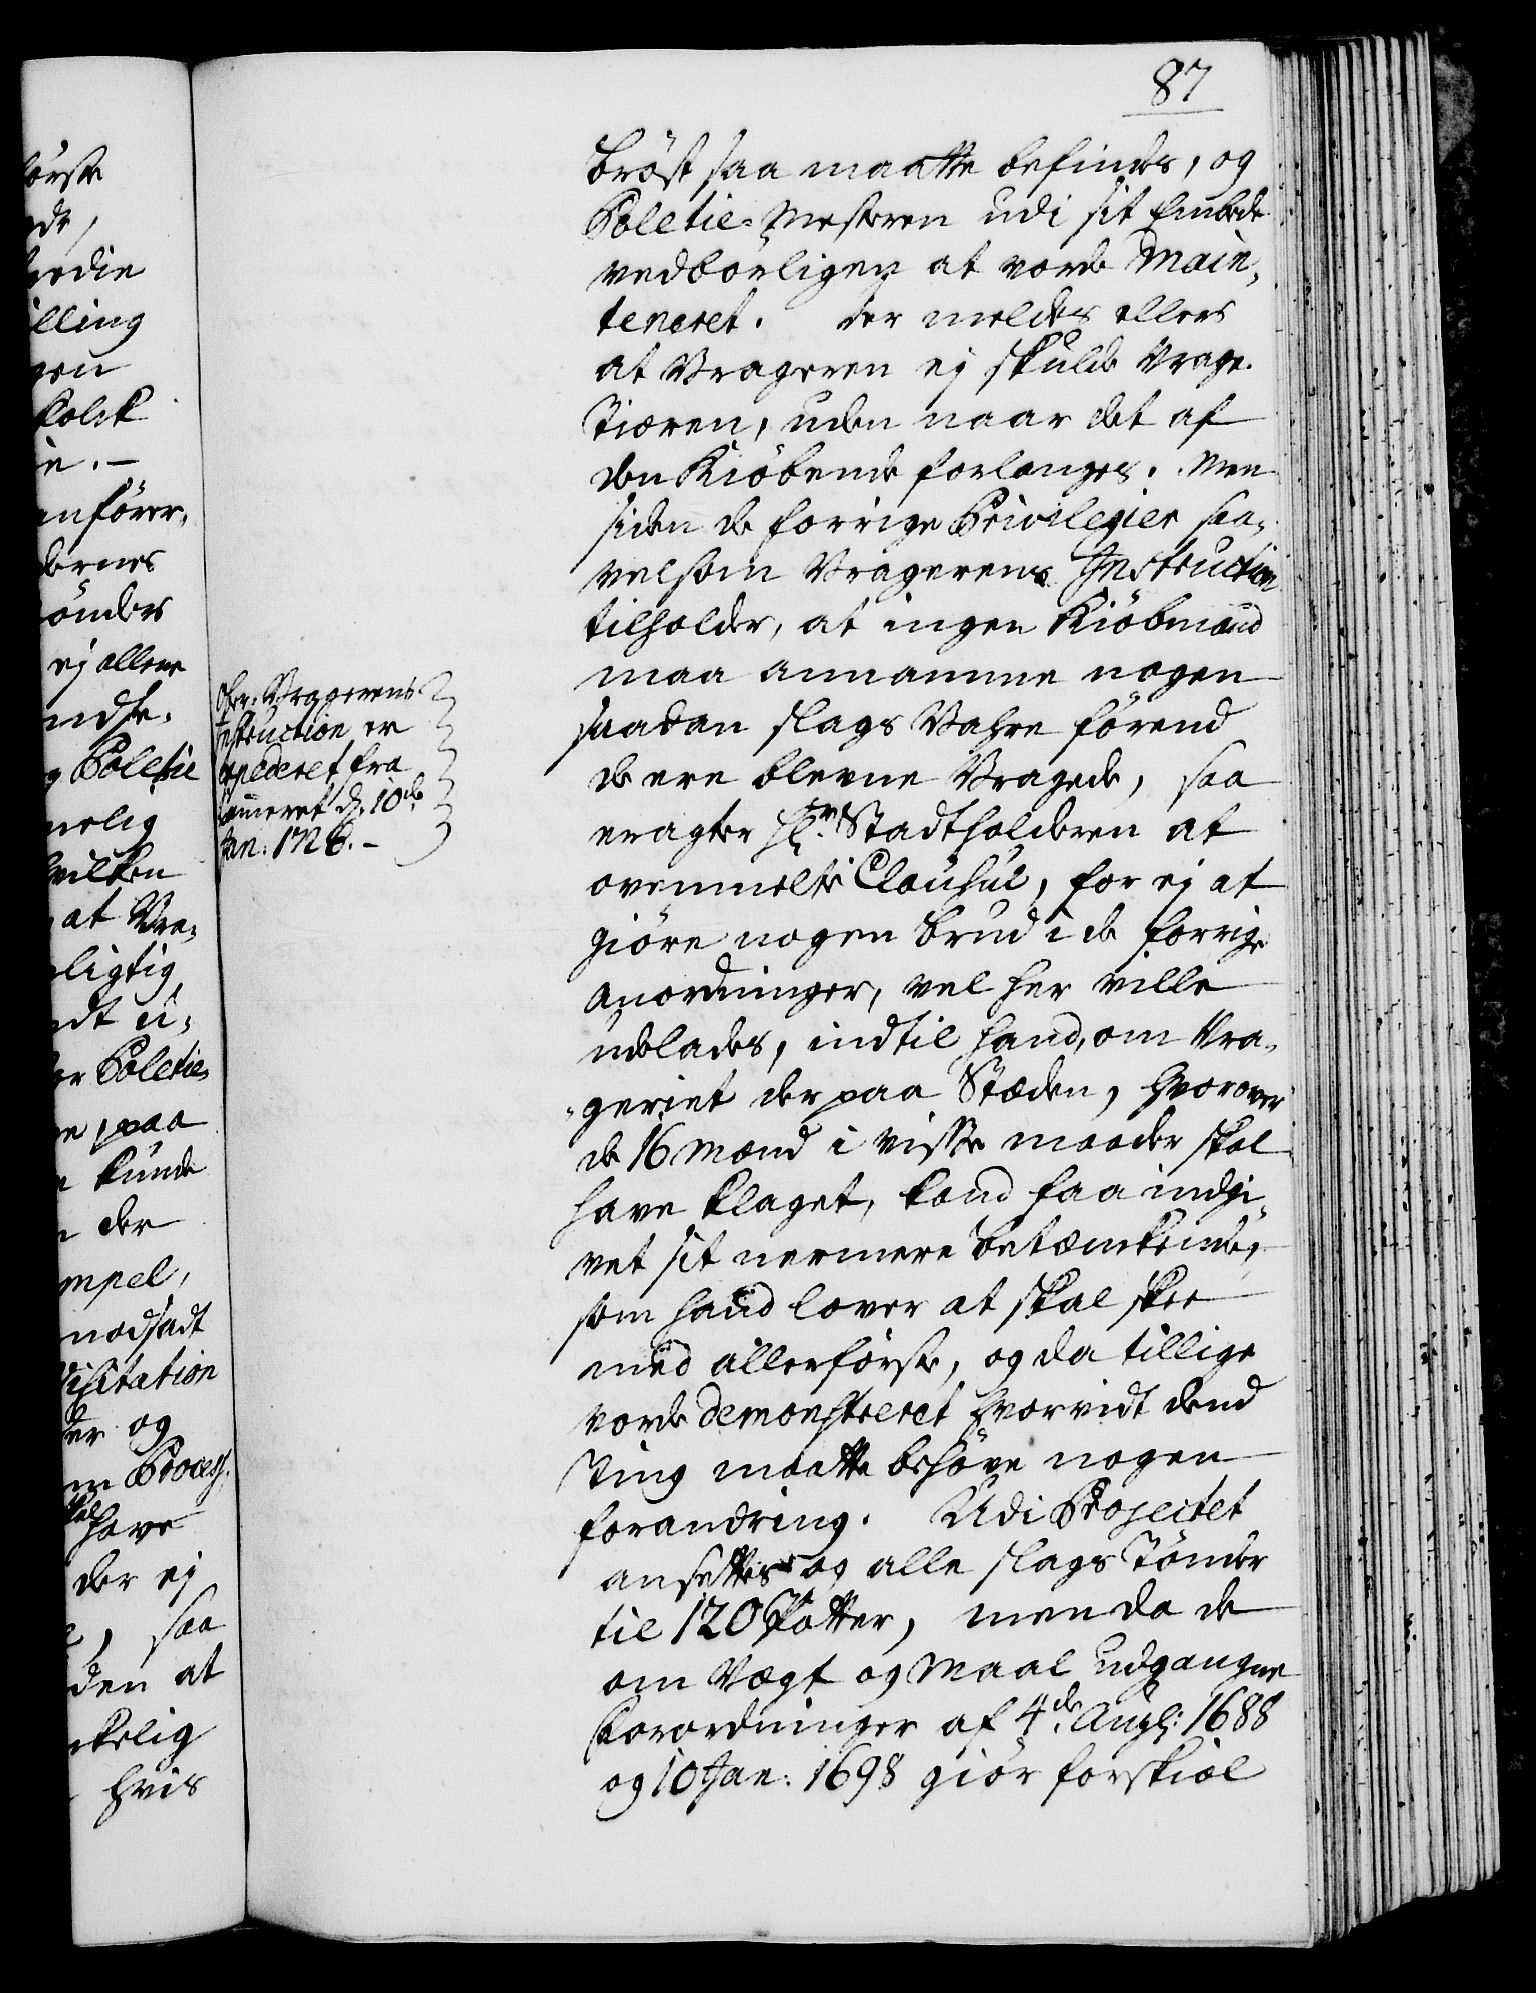 87
brøst saa maatte befindes, og
Poletie-Mesteren udi sit Embede
vedbørligen at vorde Main-
teneret. Der meldes ellers
at Vrageren ej skulde Vrage
Tiæren, uden naar det af
den Kiøbende forlanges. Men
siden de forrige Privilegier saa-
velsom Vragerens Instruction
tilholder, at ingen Kiøbmand
maa annamme nogen
saadan slags Vahre førend
de ere blevne Vragede, saa
eragter Hr. Stadtholderen at
ovenmelte Clausul, for ej at
giøre nogen brud i de forrige
Anordninger, vel her ville
udelades, indtil hand, om Vra-
geriet der paa Stæden, hvorover
de 16 Mænd i visse maader skal
have klaget, kand faa indgi-
vet sit nermere betænkende,
som hand lover at skal skee
med allerførste, og da tillige
vorde demonstreret hvorvidt dend
Ting maatte behøve nogen
forandring. Udi Projectet
ansettes og alle slags Tønder
til 120 Potter, men da de
om Vægt og Maal udgangne
Forordninger af 4de Aug: 1688
og 10 Jan: 1698 giør forskiæl
Vragerens
Instruction er
expederet fra
Cammeret d. 10de
Jan:
ørste
ede,
edie
illing
gen
kolck
ie.
anfører,
dernes
ønders
ej allene
ndse.
g Poletie
melig
hvilken
at Vra-
pligtig
ndt u-
or Poletie-
e paa
kunde
der
mpel,
modsadt
Visitation
der og
m Process.
skal have
der ej
saa
den at
ckelig
hvis